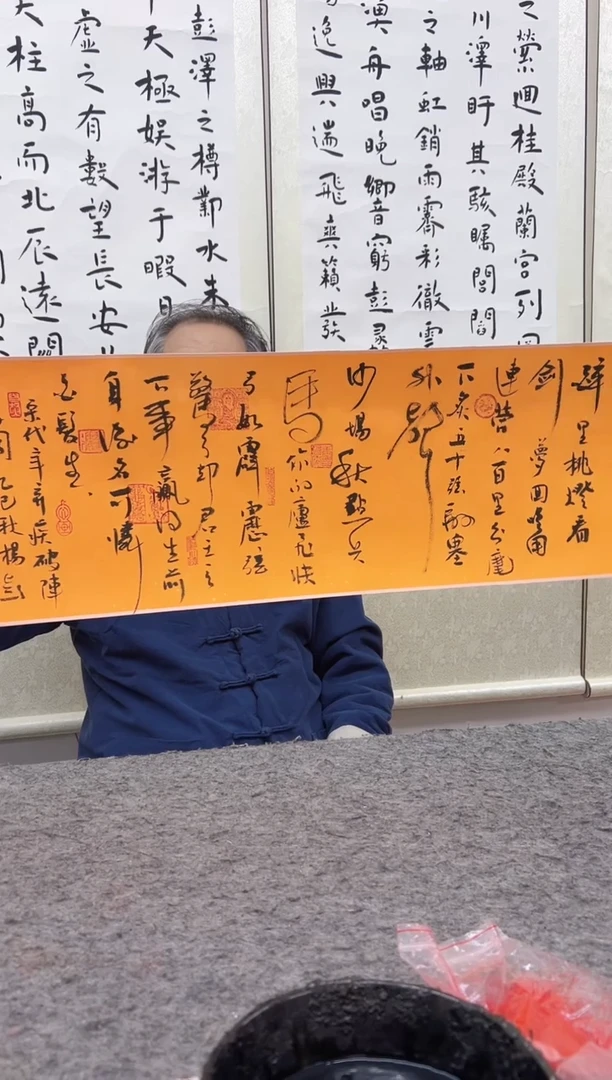 之縈迴桂殿蘭宮列
川澤盱其駭矚閭閻
之軸虹銷雨霽彩徹雲
舟唱晚響窮彭蠡
逸興遄飛爽籟發
彭澤之樽鄴水朱
天極娛游于暇日
虛之有數望長安
天柱高而北辰遠關
醉里挑燈看
劍夢回吹角
連營八百里分麾
下炙五十弦翻塞
外聲
沙場秋點兵
馬作的盧飛快
弓如霹靂弦
驚了却君王天
下事贏得生前
身後名可憐
白髮生
宋代辛弃疾破陣
乙巳秋楊